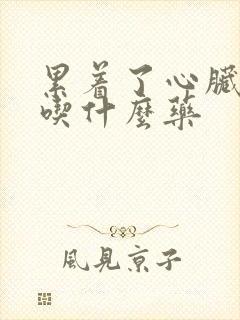 累着了心臟
喫什麼藥
風見京子